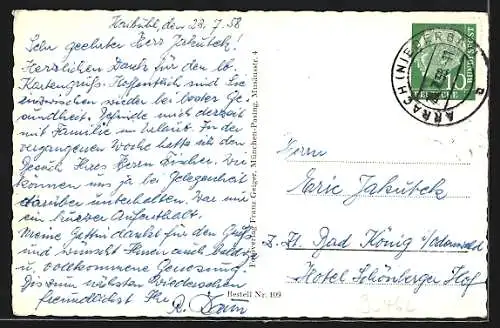 den 22.7.58
Sehr geehrter Herr Jakubek!
Herzlichen Dank für den lb.
Kartengruß. Hoffentlich sind Sie
inzwischen wieder bei bester Ge-
sundheit. Befinde mich derzeit
mit Familie im Urlaub. In der
vergangenen Woche hatte ich den
Besuch Ihres Herrn Wir
können uns ja bei Gelegenheit
darüber unterhalten. War nur
ein kurzer Aufenthalt.
Meine Gattin dankt für den Gruß
und wünscht Ihnen auch baldige
u. vollkommene Genesung.
Bis zum nächsten Wiedersehen
freundlichst Ihr
Bestell Nr. 109
Fotoverlag Franz Geiger, München-Pasing, 4
ARRACH (NIEDERB
DEUTSCHE BUNDESPOST
10
Herrn
Eric Jakubek
z. Zt. Bad König i/Odenwald
Hotel Schönberger Hof